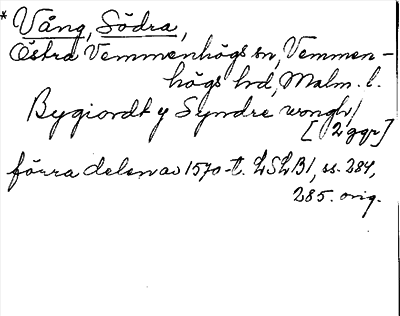 * Vång, Södra,
Östra Vemmenhögs sn, Vemmen-
högs hd, Malm. l.
Bygiordt y Syndre wongh/
[2 ggr]
förra delen av 1570-t. LSLB1, ss. 284,
285. orig.